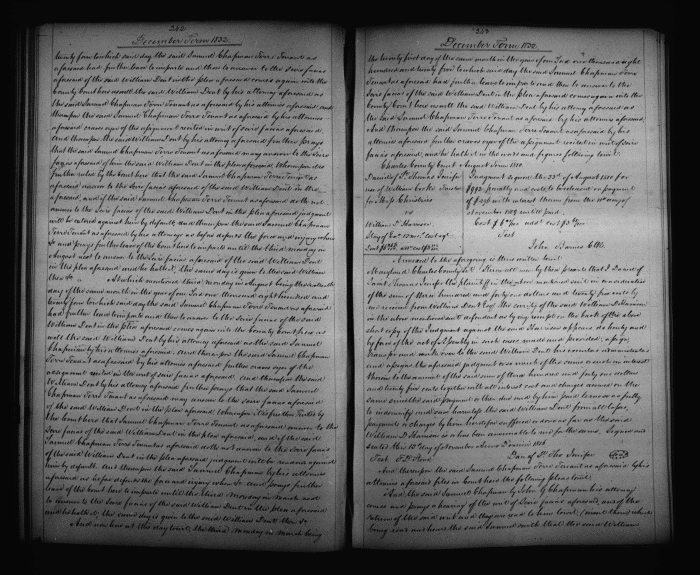 242
December Term 1832
twenty four to which said day the said Samuel Chapman Terre Tenant as
aforesaid had further leave to imparle and then to answer to the Scire facias
aforesaid of the said William Dent in the plea aforesaid comes again into the
County Court here as well the said William Dent by his attorney aforesaid as
the said Samuel Chapman Terre Tenant as aforesaid by his attornies aforesaid and
thereupon the said Samuel Chapman Terre Tenant as aforesaid by his attornies
aforesaid craves oyer of the assignment recited in writ of scire facias aforesaid
and thereupon the said William Dent by his attorney aforesaid further prays
that the said Samuel Chapman Terre Tenant as aforesaid may answer to the Scire
facias aforesaid of him the said William Dent in the plea aforesaid Whereupon it is
further ruled by the court here that the said Samuel Chapman Terre Tenant as
aforesaid answer to the Scire facias aforesaid of the said William Dent in the plea
aforesaid, and if the said Samuel Chapman Terre Tenant as aforesaid do the not
answer to the Scire facias of the said William Dent in the plea aforesaid judgment
will be entered against him by default, and thereupon the said Samuel Chapman
Terre Tenant as aforesaid by his attornies as before defends the force and injury when
&c and prays further leave of the court here to imparle until the third Monday in
August next to answer to the Scire facias aforesaid of the said William Dent
in the plea aforesaid and he hath it, the same day is given to the said William
then &c
At which said third Monday in August being the sixteenth
day of the same month in the year of our Lord one thousand eight hundred and
twenty four to which said day the said Samuel Chapman Terre Tenant as aforesaid
had further leave to imparle and then to answer to the Scire facias of the said
William Dent in the plea aforesaid comes again into the County Court here as
well the said William Dent by his attorney aforesaid as the said Samuel
Chapman by his attornies aforesaid. And thereupon the said Samuel Chapman
Terre Tenant as aforesaid by his attornies aforesaid further craves oyer of the
assignment recited in the writ of scire facias aforesaid. And thereupon the said
William Dent by his attorney aforesaid further prays that the said Samuel
Chapman Terre Tenant as aforesaid may answer to the Scire facias aforesaid
of the said William Dent in the plea aforesaid, Whereupon it is further ruled by
the court here that Samuel Chapman Terre Tenant as aforesaid answer to the
Scire facias of the said William Dent in the plea aforesaid, and if the said
Samuel Chapman Terre Tenant as aforesaid doth not answer to the Scire facias
of the said William Dent in the plea aforesaid judgment will be rendered against
him by default. And thereupon the said Samuel Chapman by his attornies
aforesaid as before defends the force and injury when &c And prays further
leave of the court here to imparle until the third Monday in March next
to answer to the Scire facias of the said William Dent in the plea aforesaid
and he hath it, the same day is given to the said William Dent then &c
And now here at this day to wit, the third Monday in March being
243
December Term 1832
the twenty first day of the same month in the year of our Lord one thousand eight
hundred and twenty five to which said day the said Samuel Chapman Terre
Tenant as aforesaid had further leave to imparle and then to answer to the
Scire facias of the said William Dent in the plea aforesaid comes again into the
County Court here as well the said William Dent by his attorney aforesaid as
the said Samuel Chapman Terre Tenant as aforesaid by his attornies aforesaid.
And thereupon the said Samuel Chapman Terre Tenant as aforesaid by his
attornies aforesaid further craves oyer of the assignment recited in writ of scire
facias aforesaid, and he hath it in the words and figures following to wit.
Charles County Court August Term 1810.
Daniel of St. Thomas Jenifer
use of William Cooke
for the use of Christains
vs
William D. Harrison
Judgment signed the 23d of August 1810 for
penalty and costs to be released on payment
of with interest from the
November 1809 until paid.
Test
John Barnes Clk.
Annexed to the aforegoing is this written to wit
Maryland Charles County Sct. Know all men by these presents that I Daniel of
Saint Thomas Jenifer the plaintiff in the above named suit in consideration
of the sum of three hundred and forty one dollars and twenty five cents by
me received from William Dent Esq. the surety of the said William D. Harrison
in the above mentioned as defendant as by my receipt on the back of the above
short copy of the Judgment against the said Harrison appears do hereby and
by force of the act of Assembly in such cases made and provided, assign,
transfer and make over to the said William Dent his executors administrators
and assigns the aforesaid judgment or so much of the same and the interest
thereon to the amount of the said sum of three hundred and forty one dollars
and twenty five cents together with all interest costs and charges accrued on the
same since the said payment
to indemnify and save harmless the said William Dent from all loss,
payments or charge by him heretofore suffered or done so far as the said
William D. Harrison is or has been answerable to me for the same. Signed and
sealed this 15 day of November Anno Domini 1816
Test P. Ford
Dan. of St. Tho Jenifer (Seal)
And thereupon the said Samuel Chapman Terre Tenant as aforesaid by his
attornies aforesaid files in court here the following plea to wit.
And the said Samuel Chapman by John G Chapman his attorney
comes and prays a hearing of the writ of Scire facias aforesaid, and of the
return of the said writ and they are read to him to wit, (insert them) which
being read and heard the said Samuel saith that the said William